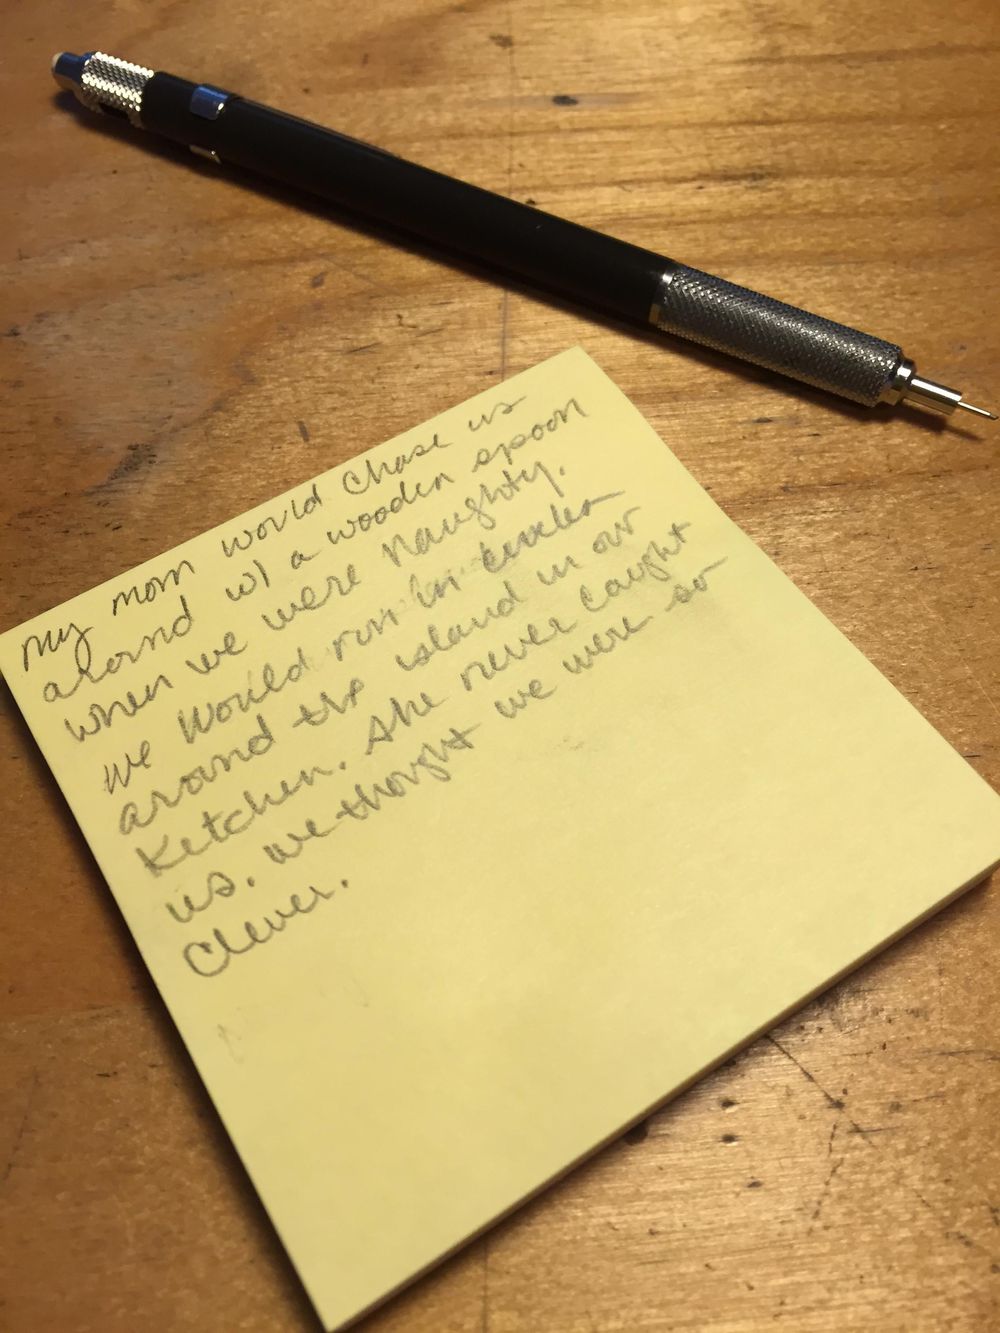 My mom would chase us
around w/ a wooden spoon
when we were naughty.
We would run in circles
around the island in our
Ketchen. She never caught
us. We thought we were so
Clever.